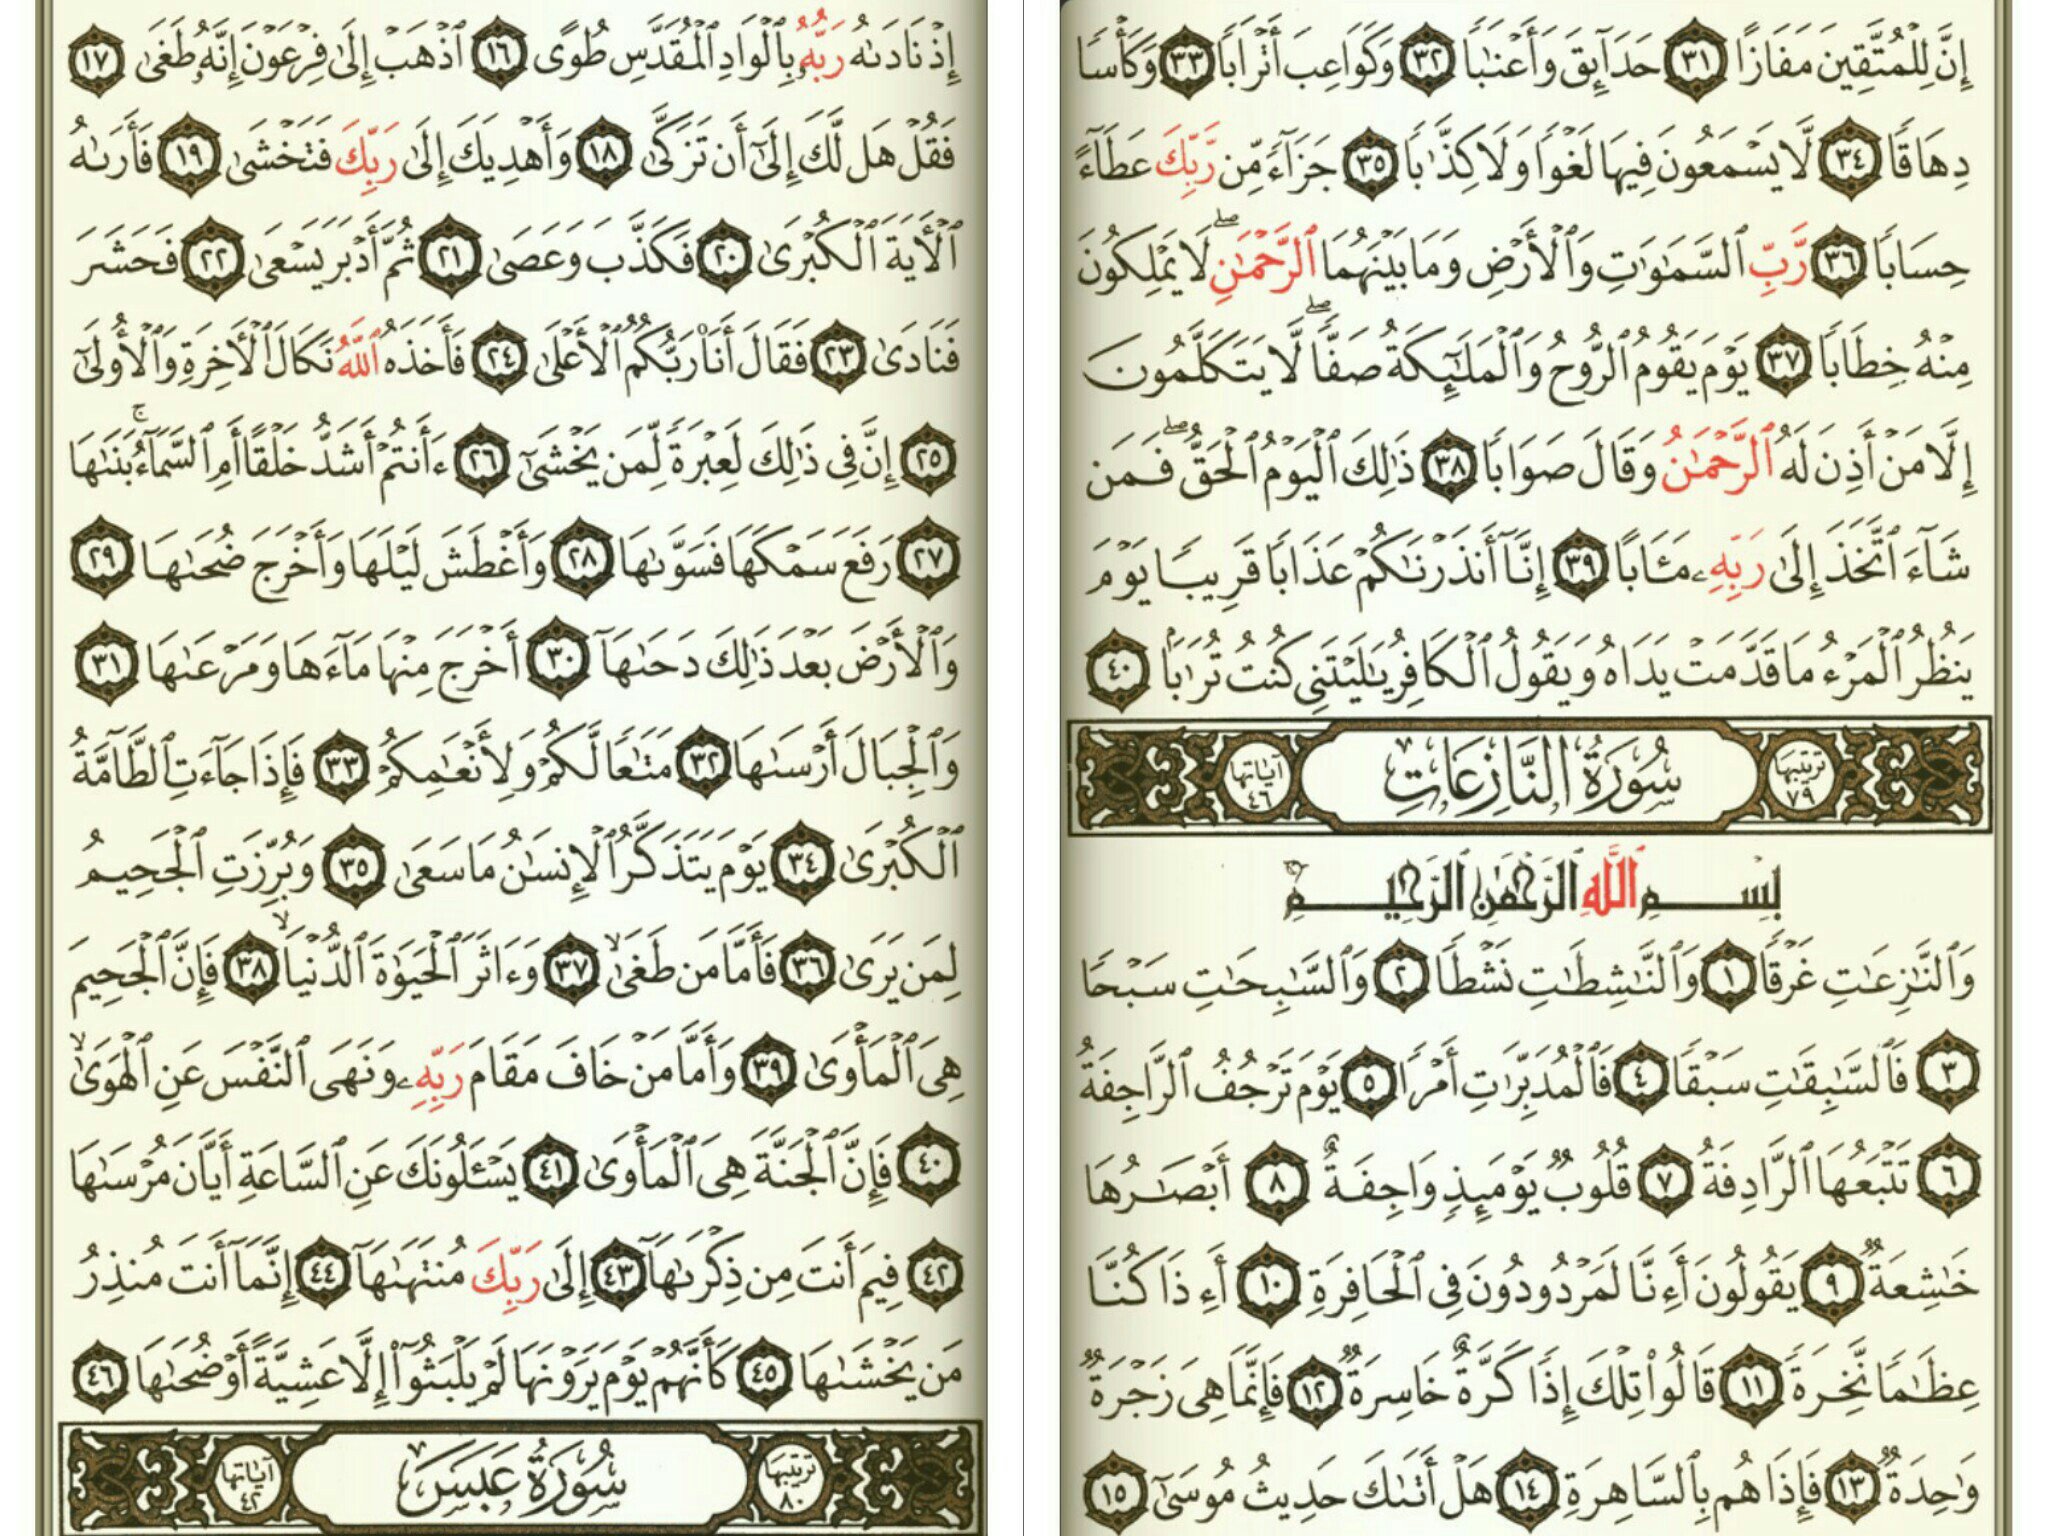 إِنَّ لِلْمُتَّقِينَ مَفَازًا ٣١ حَدَآئِقَ وَأَعْنَٰبًا ٣٢ وَكَوَاعِبَ أَتْرَابًا ٣٣ وَكَأْسًا
دِهَاقًا ٣٤ لَّا يَسْمَعُونَ فِيهَا لَغْوًا وَلَا كِذَّٰبًا ٣٥ جَزَآءً مِّن رَّبِّكَ عَطَآءً
حِسَابًا ٣٦ رَّبِّ ٱلسَّمَٰوَٰتِ وَٱلْأَرْضِ وَمَا بَيْنَهُمَا ٱلرَّحْمَٰنِ ۖ لَا يَمْلِكُونَ
مِنْهُ خِطَابًا ٣٧ يَوْمَ يَقُومُ ٱلرُّوحُ وَٱلْمَلَٰٓئِكَةُ صَفًّا ۖ لَّا يَتَكَلَّمُونَ
إِلَّا مَنْ أَذِنَ لَهُ ٱلرَّحْمَٰنُ وَقَالَ صَوَابًا ٣٨ ذَٰلِكَ ٱلْيَوْمُ ٱلْحَقُّ ۖ فَمَن
شَآءَ ٱتَّخَذَ إِلَىٰ رَبِّهِۦ مَـَٔابًا ٣٩ إِنَّآ أَنذَرْنَٰكُمْ عَذَابًا قَرِيبًا يَوْمَ
يَنظُرُ ٱلْمَرْءُ مَا قَدَّمَتْ يَدَاهُ وَيَقُولُ ٱلْكَافِرُ يَٰلَيْتَنِى كُنتُ تُرَٰبًۢا ٤٠
ترتيبها ٧٩ سُورَةُ النَّازِعَاتِ آياتها ٤٦
بِسْمِ ٱللَّهِ ٱلرَّحْمَٰنِ ٱلرَّحِيمِ
وَٱلنَّٰزِعَٰتِ غَرْقًا ١ وَٱلنَّٰشِطَٰتِ نَشْطًا ٢ وَٱلسَّٰبِحَٰتِ سَبْحًا
٣ فَٱلسَّٰبِقَٰتِ سَبْقًا ٤ فَٱلْمُدَبِّرَٰتِ أَمْرًا ٥ يَوْمَ تَرْجُفُ ٱلرَّاجِفَةُ
٦ تَتْبَعُهَا ٱلرَّادِفَةُ ٧ قُلُوبٌ يَوْمَئِذٍ وَاجِفَةٌ ٨ أَبْصَٰرُهَا
خَٰشِعَةٌ ٩ يَقُولُونَ أَءِنَّا لَمَرْدُودُونَ فِى ٱلْحَافِرَةِ ١٠ أَءِذَا كُنَّا
عِظَٰمًا نَّخِرَةً ١١ قَالُوا۟ تِلْكَ إِذًا كَرَّةٌ خَاسِرَةٌ ١٢ فَإِنَّمَا هِىَ زَجْرَةٌ
وَٰحِدَةٌ ١٣ فَإِذَا هُم بِٱلسَّاهِرَةِ ١٤ هَلْ أَتَىٰكَ حَدِيثُ مُوسَىٰٓ ١٥
إِذْ نَادَىٰهُ رَبُّهُۥ بِٱلْوَادِ ٱلْمُقَدَّسِ طُوًى ١٦ ٱذْهَبْ إِلَىٰ فِرْعَوْنَ إِنَّهُۥ طَغَىٰ ١٧
فَقُلْ هَل لَّكَ إِلَىٰٓ أَن تَزَكَّىٰ ١٨ وَأَهْدِيَكَ إِلَىٰ رَبِّكَ فَتَخْشَىٰ ١٩ فَأَرَىٰهُ
ٱلْءَايَةَ ٱلْكُبْرَىٰ ٢٠ فَكَذَّبَ وَعَصَىٰ ٢١ ثُمَّ أَدْبَرَ يَسْعَىٰ ٢٢ فَحَشَرَ
فَنَادَىٰ ٢٣ فَقَالَ أَنَا۠ رَبُّكُمُ ٱلْأَعْلَىٰ ٢٤ فَأَخَذَهُ ٱللَّهُ نَكَالَ ٱلْءَاخِرَةِ وَٱلْأُولَىٰٓ
٢٥ إِنَّ فِى ذَٰلِكَ لَعِبْرَةً لِّمَن يَخْشَىٰٓ ٢٦ ءَأَنتُمْ أَشَدُّ خَلْقًا أَمِ ٱلسَّمَآءُ ۚ بَنَىٰهَا
٢٧ رَفَعَ سَمْكَهَا فَسَوَّىٰهَا ٢٨ وَأَغْطَشَ لَيْلَهَا وَأَخْرَجَ ضُحَىٰهَا ٢٩
وَٱلْأَرْضَ بَعْدَ ذَٰلِكَ دَحَىٰهَآ ٣٠ أَخْرَجَ مِنْهَا مَآءَهَا وَمَرْعَىٰهَا ٣١
وَٱلْجِبَالَ أَرْسَىٰهَا ٣٢ مَتَٰعًا لَّكُمْ وَلِأَنْعَٰمِكُمْ ٣٣ فَإِذَا جَآءَتِ ٱلطَّآمَّةُ
ٱلْكُبْرَىٰ ٣٤ يَوْمَ يَتَذَكَّرُ ٱلْإِنسَٰنُ مَا سَعَىٰ ٣٥ وَبُرِّزَتِ ٱلْجَحِيمُ
لِمَن يَرَىٰ ٣٦ فَأَمَّا مَن طَغَىٰ ۙ ٣٧ وَءَاثَرَ ٱلْحَيَوٰةَ ٱلدُّنْيَا ۙ ٣٨ فَإِنَّ ٱلْجَحِيمَ
هِىَ ٱلْمَأْوَىٰ ٣٩ وَأَمَّا مَنْ خَافَ مَقَامَ رَبِّهِۦ وَنَهَى ٱلنَّفْسَ عَنِ ٱلْهَوَىٰ ۙ
٤٠ فَإِنَّ ٱلْجَنَّةَ هِىَ ٱلْمَأْوَىٰ ٤١ يَسْـَٔلُونَكَ عَنِ ٱلسَّاعَةِ أَيَّانَ مُرْسَىٰهَا
٤٢ فِيمَ أَنتَ مِن ذِكْرَىٰهَآ ٤٣ إِلَىٰ رَبِّكَ مُنتَهَىٰهَآ ٤٤ إِنَّمَآ أَنتَ مُنذِرُ
مَن يَخْشَىٰهَا ٤٥ كَأَنَّهُمْ يَوْمَ يَرَوْنَهَا لَمْ يَلْبَثُوٓا۟ إِلَّا عَشِيَّةً أَوْ ضُحَىٰهَا ٤٦
ترتيبها ٨٠ سُورَةُ عَبَسَ آياتها ٤٢